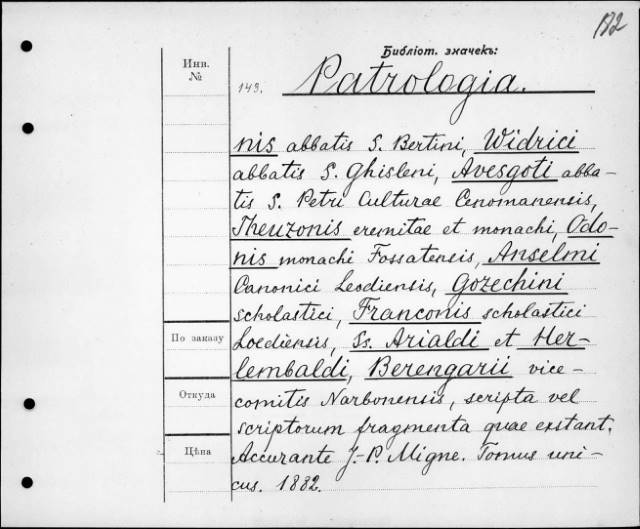 182
Библіот. значекъ:
Инв.
№
143.
Patrologia.
nis abbatis S. Bertini, Widrici
abbatis S. Ghisleni, Avesgoti abba-
tis S. Petri Culturae Cenomanensis,
Theuzonis eremitae et monachi, Odo-
nis monachi Fossatensis, Anselmi
Canonici Leodiensis, Gozechini
scholastici, Franconis scholastici
Loediensis, Ss. Arialdi et Her-
lembaldi, Berengarii vice-
comitis Narbonensis, scripta vel
scriptorum fragmenta quae exstant.
Accurante J.-P. Migne. Tomus uni-
cus. 1882.
По заказу
Откуда
Цѣна